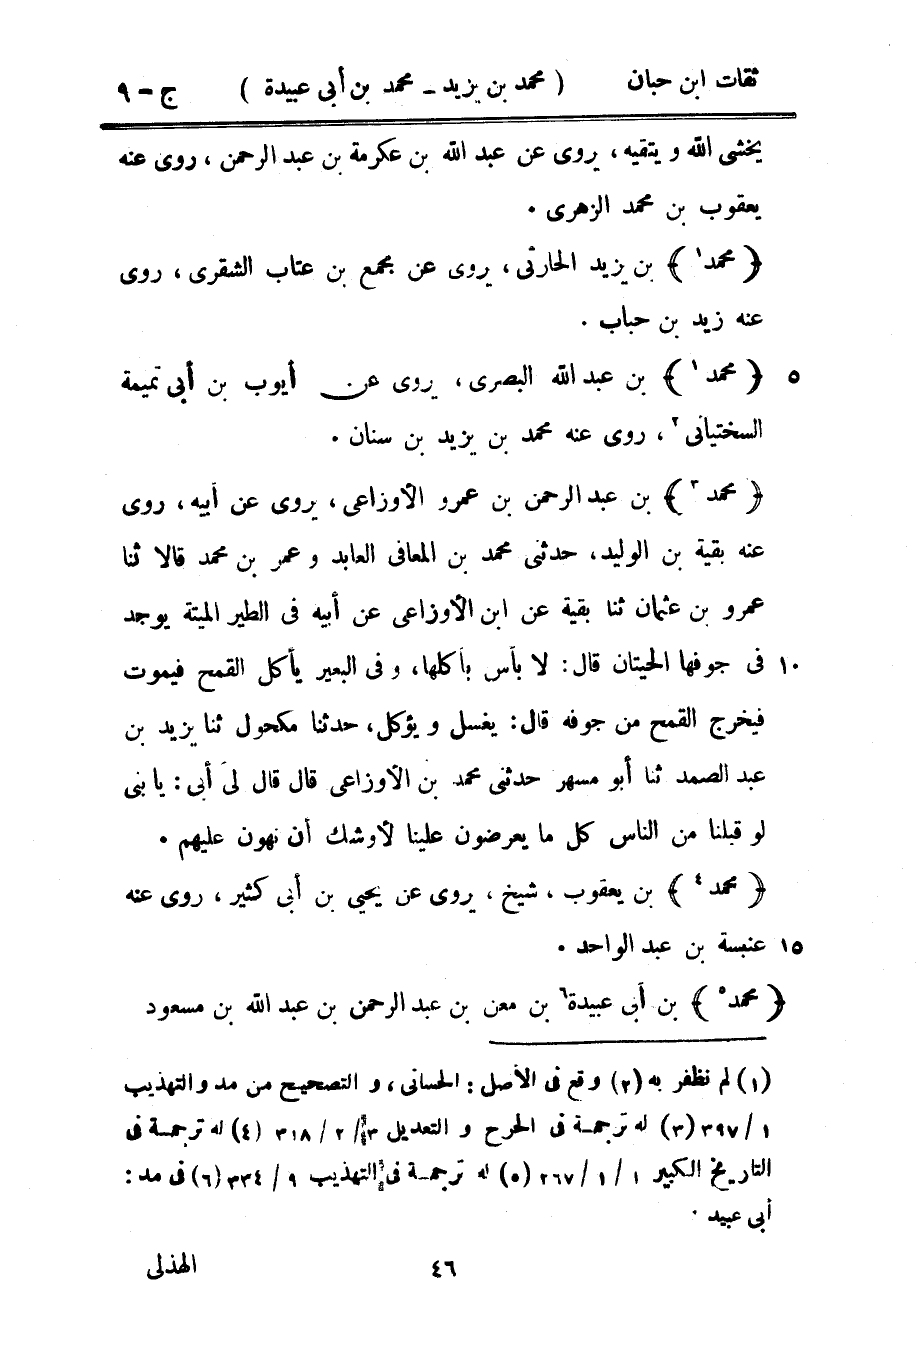 ثقات ابن حبان ( محمد بن يزيد ـ محمد بن أبى عبيدة ) ج - ٩
يخشى الله و يتقيه ، يروى عن عبد الله بن عكرمة بن عبد الرحمن ، روى عنه
يعقوب بن محمد الزهرى .
﴿ محمد ١ ﴾ بن يزيد الحارثى ، يروى عن مجمع بن عتاب الشقرى ، روى
عنه زيد بن حباب .
٥ ﴿ محمد ١ ﴾ بن عبد الله البصرى ، يروى عن أيوب بن أبى تميمة
السختيانى ٢ ، روى عنه محمد بن يزيد بن سنان .
﴿ محمد ٣ ﴾ بن عبد الرحمن بن عمرو الأوزاعى ، يروى عن أبيه ، روى
عنه بقية بن الوليد ، حدثنى محمد بن المعافى العابد و عمر بن محمد قالا ثنا
عمرو بن عثمان ثنا بقية عن ابن الأوزاعى عن أبيه فى الطير الميتة يوجد
١٠ فى جوفها الحيتان قال : لا بأس بأكلها ، و فى البعير يأكل القمح فيموت
فيخرج القمح من جوفه قال : يغسل و يؤكل ، حدثنا مكحول ثنا يزيد بن
عبد الصمد ثنا أبو مسهر حدثنى محمد بن الأوزاعى قال قال لى أبى : يا بنى
لو قبلنا من الناس كل ما يعرضون علينا لأوشك أن نهون عليهم .
﴿ محمد ٤ ﴾ بن يعقوب ، شيخ ، يروى عن يحيى بن أبى كثير ، روى عنه
١٥ عنبسة بن عبد الواحد .
﴿ محمد ٥ ﴾ بن أبى عبيدة ٦ بن معن بن عبد الرحمن بن عبد الله بن مسعود
(١) لم نظفر به (٢) وقع فى الأصل : الحسانى ، و التصحيح من مد و التهذيب
١ / ٣٩٧ (٣) له ترجمة فى الجرح و التعديل ٣ / ٢ / ٣١٨ (٤) له ترجمة فى
التاريخ الكبير ١ / ١ / ٢٦٧ (٥) له ترجمة فى التهذيب ٩ / ٣٣٤ (٦) فى مد :
أبى عبيد .
٤٦ الهذلى